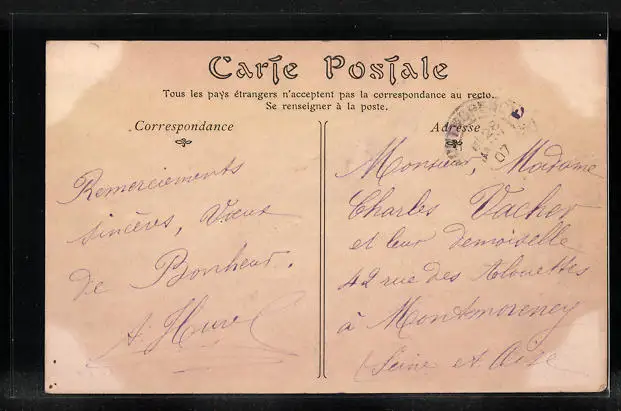 Carte Postale
Tous les pays étrangers n'acceptent pas la correspondance au recto.
Se renseigner à la poste.
Correspondance
Remerciements
sincères, Vœux
de Bonheur.
A. Hure
Adresse
07
Monsieur, Madame
Charles Vacher
et leur demoiselle
42 rue des Alouettes
à Montmorency
Seine et Oise